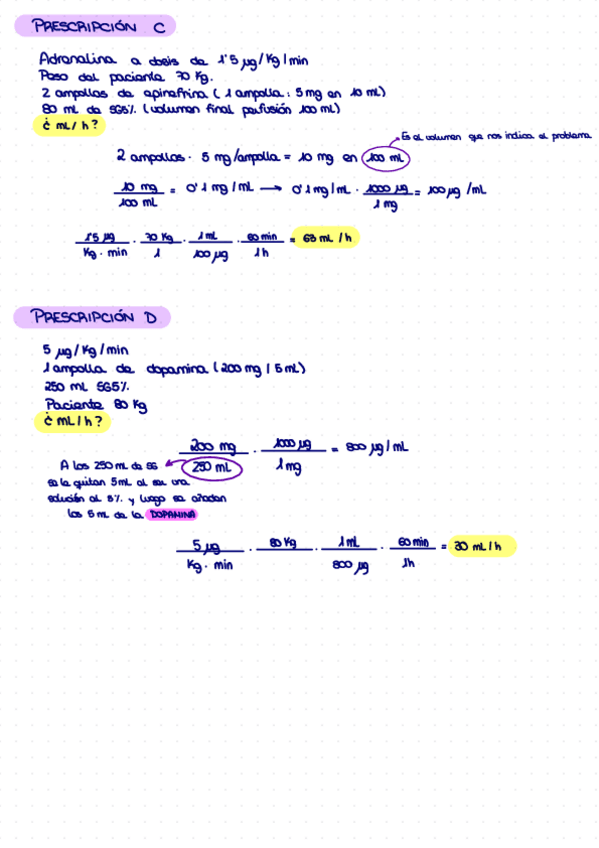 PRESCRIPCIÓN C
Adrenalina a dosis de 1'5 µg/kg/min
Peso del paciente 70 Kg.
2 ampollas de epinefrina (1 ampolla: 5 mg en 10 mL)
80 mL de SG5% (volumen final perfusión 100 mL)
¿ mL/h?
Es el volumen que nos indica el problema
2 ampollas · 5 mg/ampolla = 10 mg en 100 mL
10 mg / 100 mL = 0'1 mg/mL → 0'1 mg/mL · 1000 µg / 1 mg = 100 µg/mL
1'5 µg / Kg · min · 70 Kg / 1 · 1 mL / 100 µg · 60 min / 1 h = 63 mL/h
PRESCRIPCIÓN D
5 µg/Kg/min
1 ampolla de dopamina (200 mg / 5 mL)
250 mL SG5%
Paciente 80 Kg
¿ mL/h?
200 mg / 250 mL · 1000 µg / 1 mg = 800 µg/mL
A los 250 mL de SG
se le quitan 5 mL al ser una
solución al 5% y luego se añaden
los 5 mL de la DOPAMINA
5 µg / Kg · min · 80 Kg · 1 mL / 800 µg · 60 min / 1h = 30 mL/h